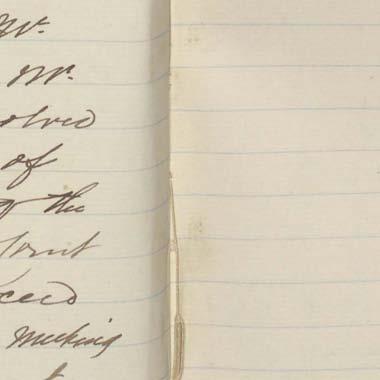 Mr.
Mr.
olved
of
the
ceed
meeting